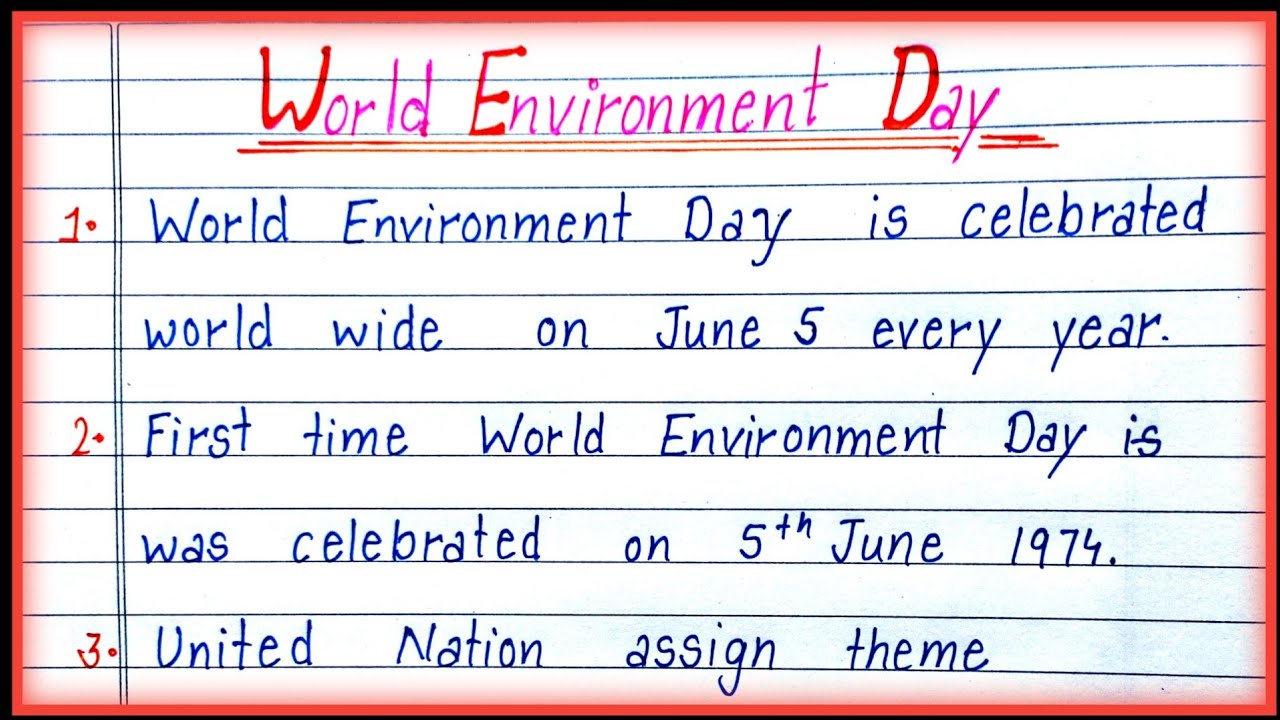 World Environment Day
1. World Environment Day is celebrated
world wide on June 5 every year.
2. First time World Environment Day is
was celebrated on 5th June 1974.
3. United Nation assign theme